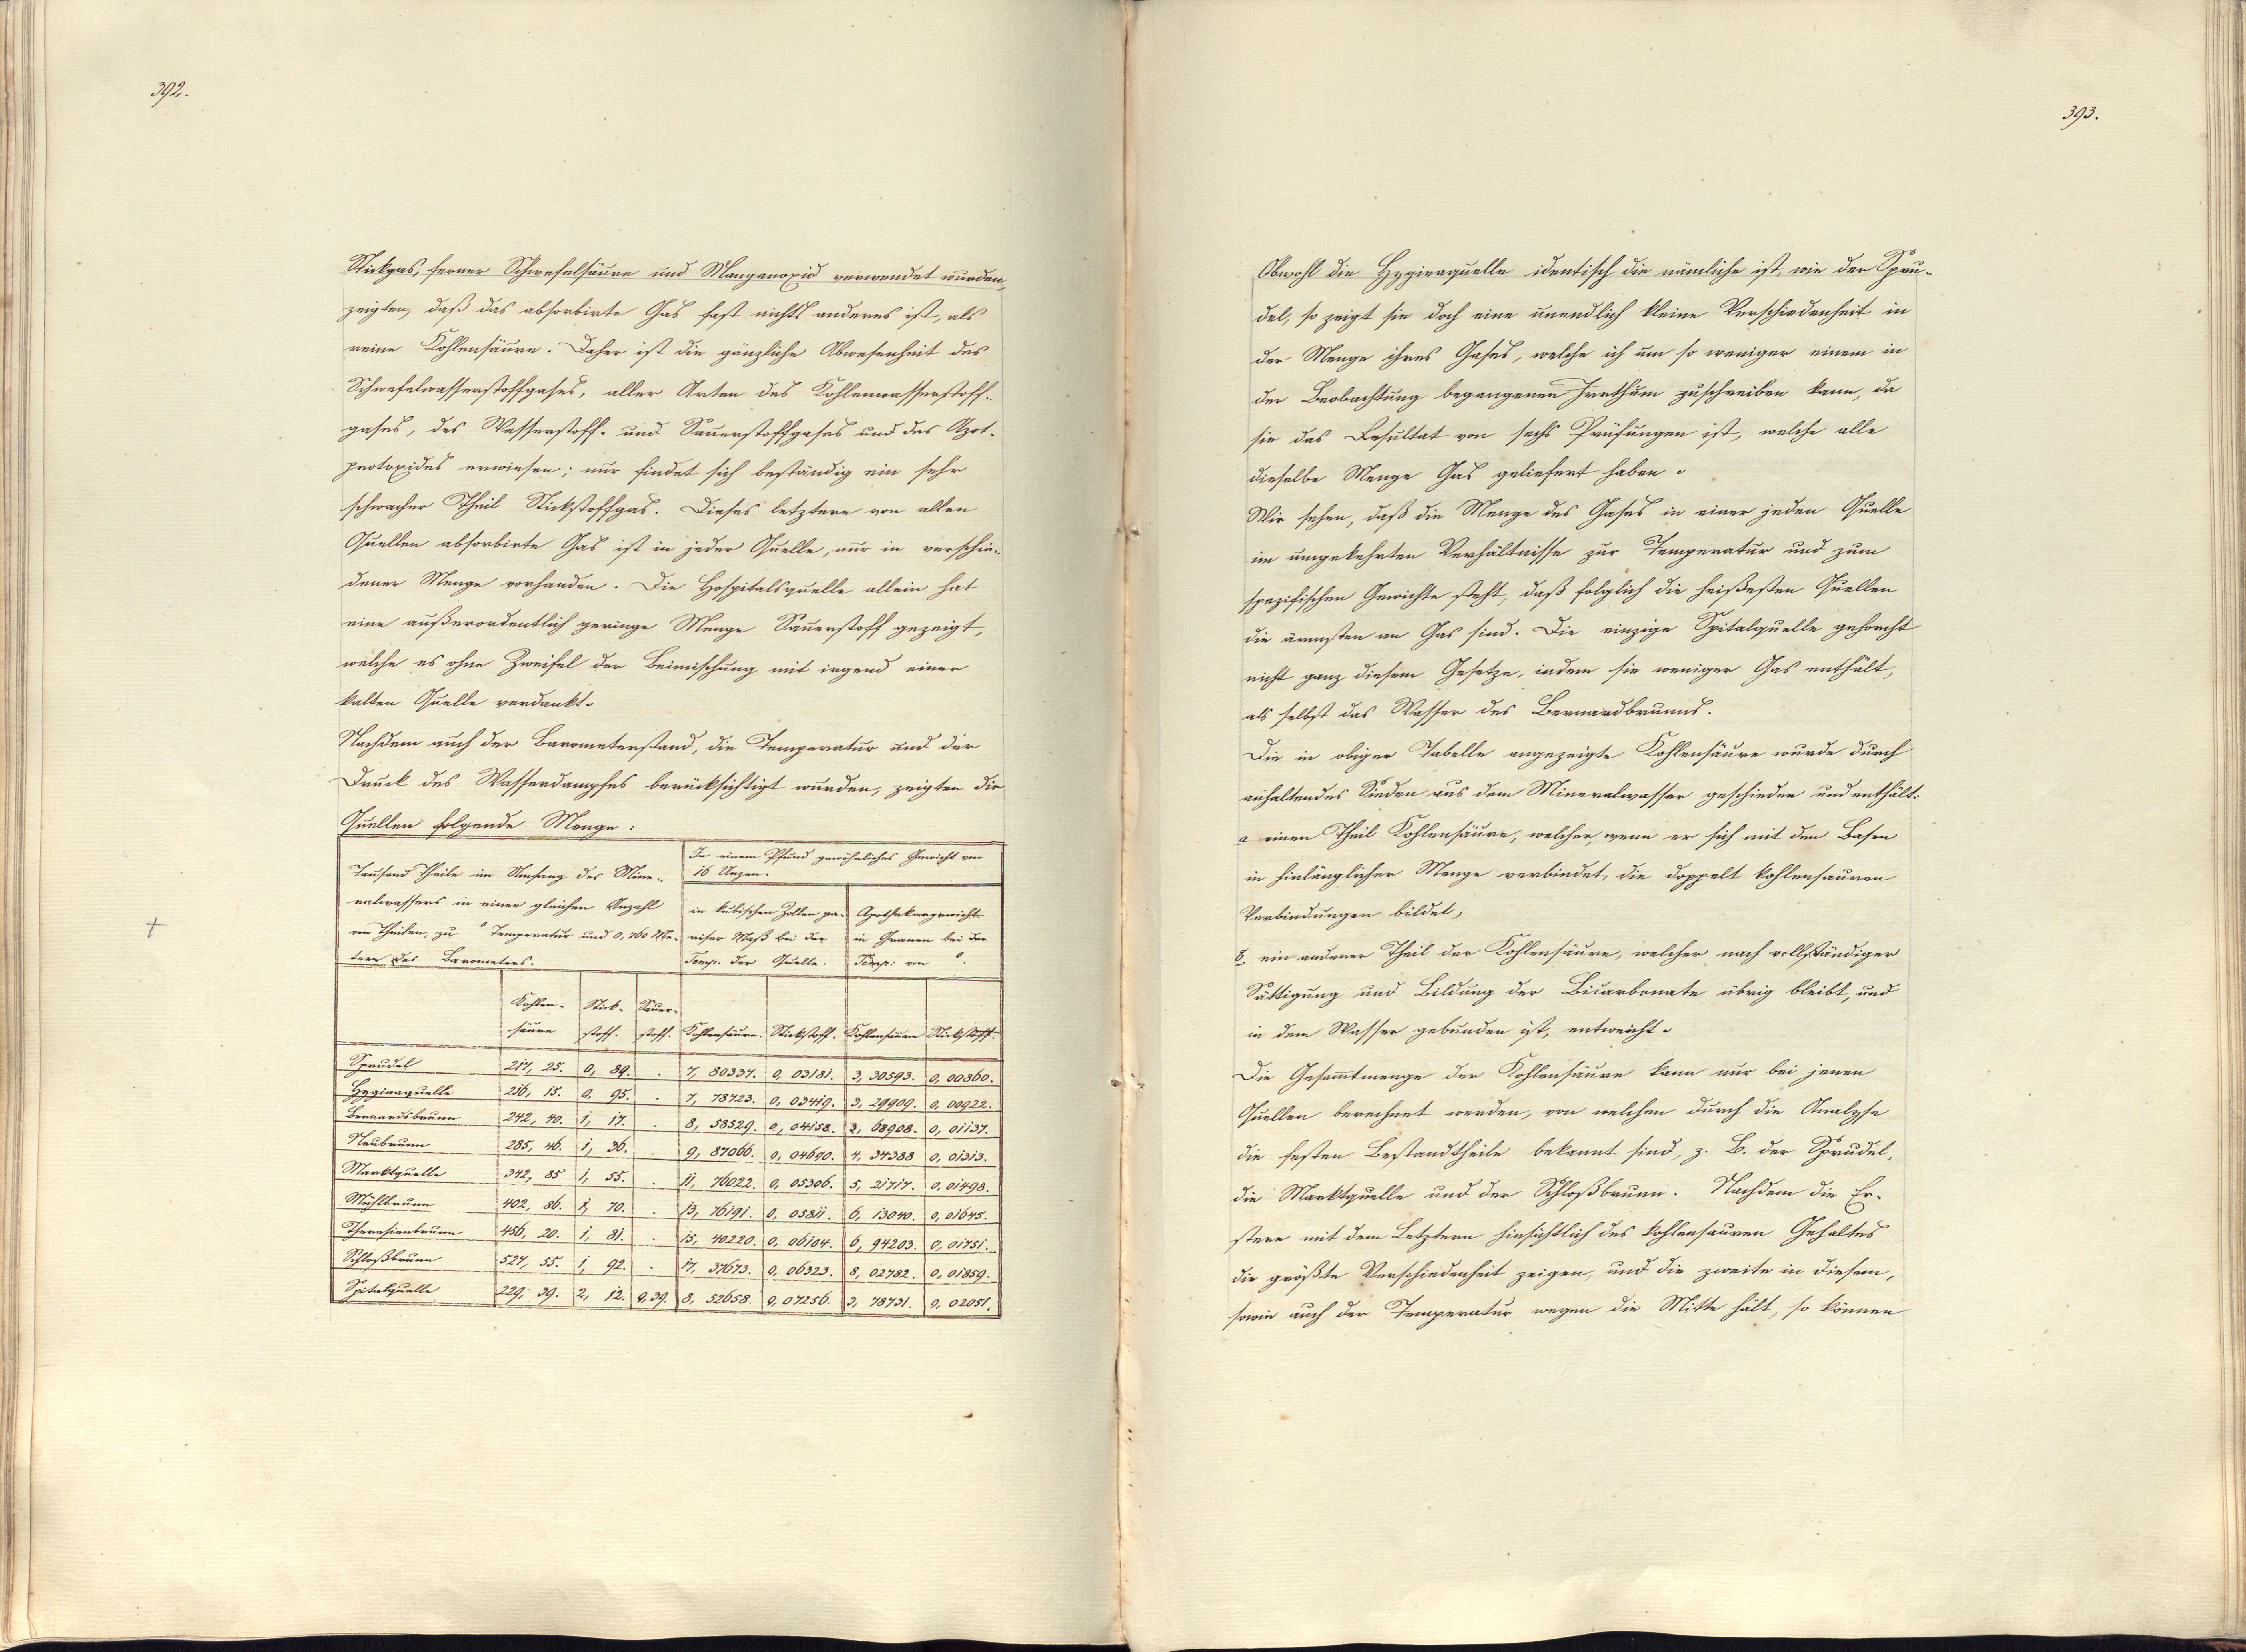 392.
Stickgas, ferner Schwefelsäure und Manganoxid verwendet wurden,
zeigten, daß das absorbirte Gas fast nichts anderes ist, als
reine Kohlensäure. Daher ist die gänzliche Abwesenheit des
Schwefelwasserstoffgases, aller Arten des Kohlenwasserstoff-
gases, des Wasserstoff- und Sauerstoffgases und des Azot-
protoxides erwiesen; nur findet sich beständig ein sehr
schwacher Theil Stickstoffgas. Dieses letztere von allen
Quellen absorbirte Gas ist in jeder Quelle, nur in verschie-
dener Menge vorhanden. Die Hospitalsquelle allein hat
eine außerordentlich geringe Menge Sauerstoff gezeigt,
welche es ohne Zweifel der Beimischung mit irgend einer
kalten Quelle verdankt.
Nachdem auch der Barometerstand, die Temperatur und der
Druck des Wasserdampfes berücksichtigt wurden, zeigten die
Quellen folgende Menge:
Tausend Theile im Umfang des Mine-
ralwassers in einer gleichen Anzahl
von Theilen, zu ° Temperatur und 0,760 Me-
tern des Barometers.
In einem Pfund gewöhnliches Gewicht von
16 Unzen.
in kubischen Zollen pa-
riser Maß bei der
Temp. der Quelle.
Apothekergewichte
in Granen bei der
Temp: von °.
Kohlen-säure Stick-stoff. Sauer-stoff. Kohlensäure. Stickstoff. Kohlensäure Stickstoff.
Sprudel 217, 25. 0, 89. . 7, 80337. 0, 03181. 3, 30593. 0, 00860.
Hygieaquelle 216, 15. 0, 95. . 7, 78723. 0, 03419. 3, 29909. 0, 00922.
Bernardsbrunn 242, 40. 1, 17. . 8, 58529. 0, 04158. 3, 68908. 0, 01137.
Neubrunn 285, 46. 1, 36. 9, 87066. 0, 04690. 4, 34388 0, 01313.
Marktquelle 342, 85 1, 55. . 11, 76022. 0, 05306. 5, 21717. 0, 01498.
Mühlbrunn 402, 86. 1, 70. . 13, 76191. 0, 05811. 6, 13040. 0, 01645.
Theresienbrunn 456, 20. 1, 81. . 15, 40220. 0, 06104. 6, 94203. 0, 01751.
Schloßbrunn 527, 55. 1, 92. . 17, 37673. 0, 06323. 8, 02782. 0, 01859.
Spitalquelle 229, 39. 2, 12. 0,39. 8, 52658. 0, 07256. 3, 78731. 0, 02051.
393.
Obwohl die Hygieaquelle identisch die nämliche ist, wie der Spru-
del, so zeigt sie doch eine unendlich kleine Verschiedenheit in
der Menge ihres Gases, welche ich um so weniger einem in
der Beobachtung begangenen Irrthum zuschreiben kann, da
sie das Resultat von sechs Prüfungen ist, welche alle
dieselbe Menge Gas geliefert haben.
Wir sehen, daß die Menge des Gases in einer jeden Quelle
im umgekehrten Verhältnisse zur Temperatur und zum
spezifischen Gewichte steht, daß folglich die heißesten Quellen
die ärmsten an Gas sind. Die einzige Spitalquelle gehorcht
nicht ganz diesem Gesetze, indem sie weniger Gas enthält,
als selbst das Wasser des Bernardbrunns.
Die in obiger Tabelle angezeigte Kohlensäure wurde durch
anhaltendes Sieden aus dem Mineralwasser geschieden und enthält:
a einen Theil Kohlensäure, welcher, wenn er sich mit den Basen
in hinlänglicher Menge verbindet, die doppelt kohlensauren
Verbindungen bildet,
b. ein anderer Theil der Kohlensäure, welcher nach vollständiger
Sättigung und Bildung der Bicarbonate übrig bleibt, und
in dem Wasser gebunden ist, entweicht.
Die Gesammtmenge der Kohlensäure kann nur bei jenen
Quellen berechnet werden, von welchen durch die Analyse
die festen Bestandtheile bekannt sind, z. B. der Sprudel,
die Marktquelle und der Schloßbrunn. Nachdem die Er-
stere mit dem Letztern hinsichtlich des kohlensauren Gehaltes
die größte Verschiedenheit zeigen, und die zweite in diesem,
sowie auch der Temperatur wegen die Mitte hält, so können